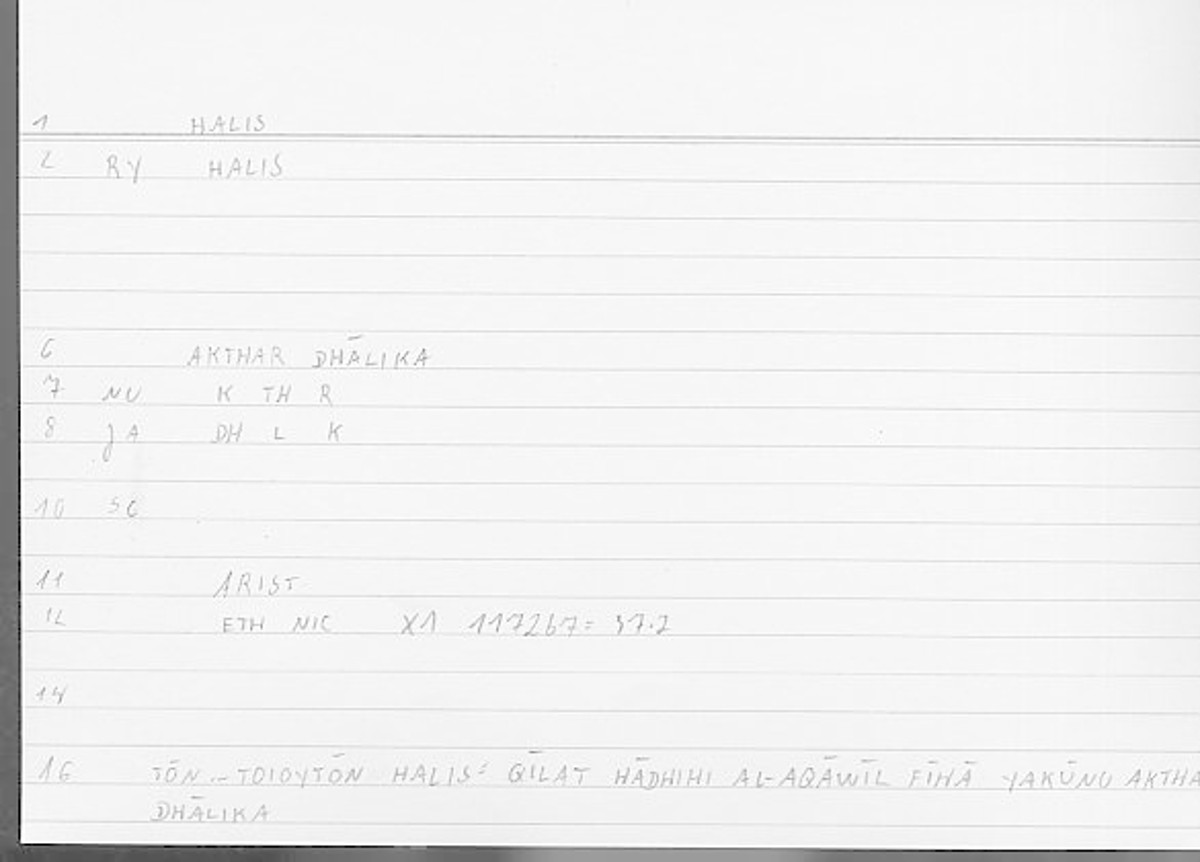 1 HALIS
2 RY HALIS
6 AKTHAR DHĀLIKA
7 NU K TH R
8 JA DH L K
10 SC
11 ARIST
12 ETH NIC X1 1172b7= 37.2
14
16 TŌN ... TOIOYTŌN HALIS: QĪLAT HĀDHIHI AL-AQĀWĪL FĪHĀ YAKŪNU AKTHA
DHĀLIKA